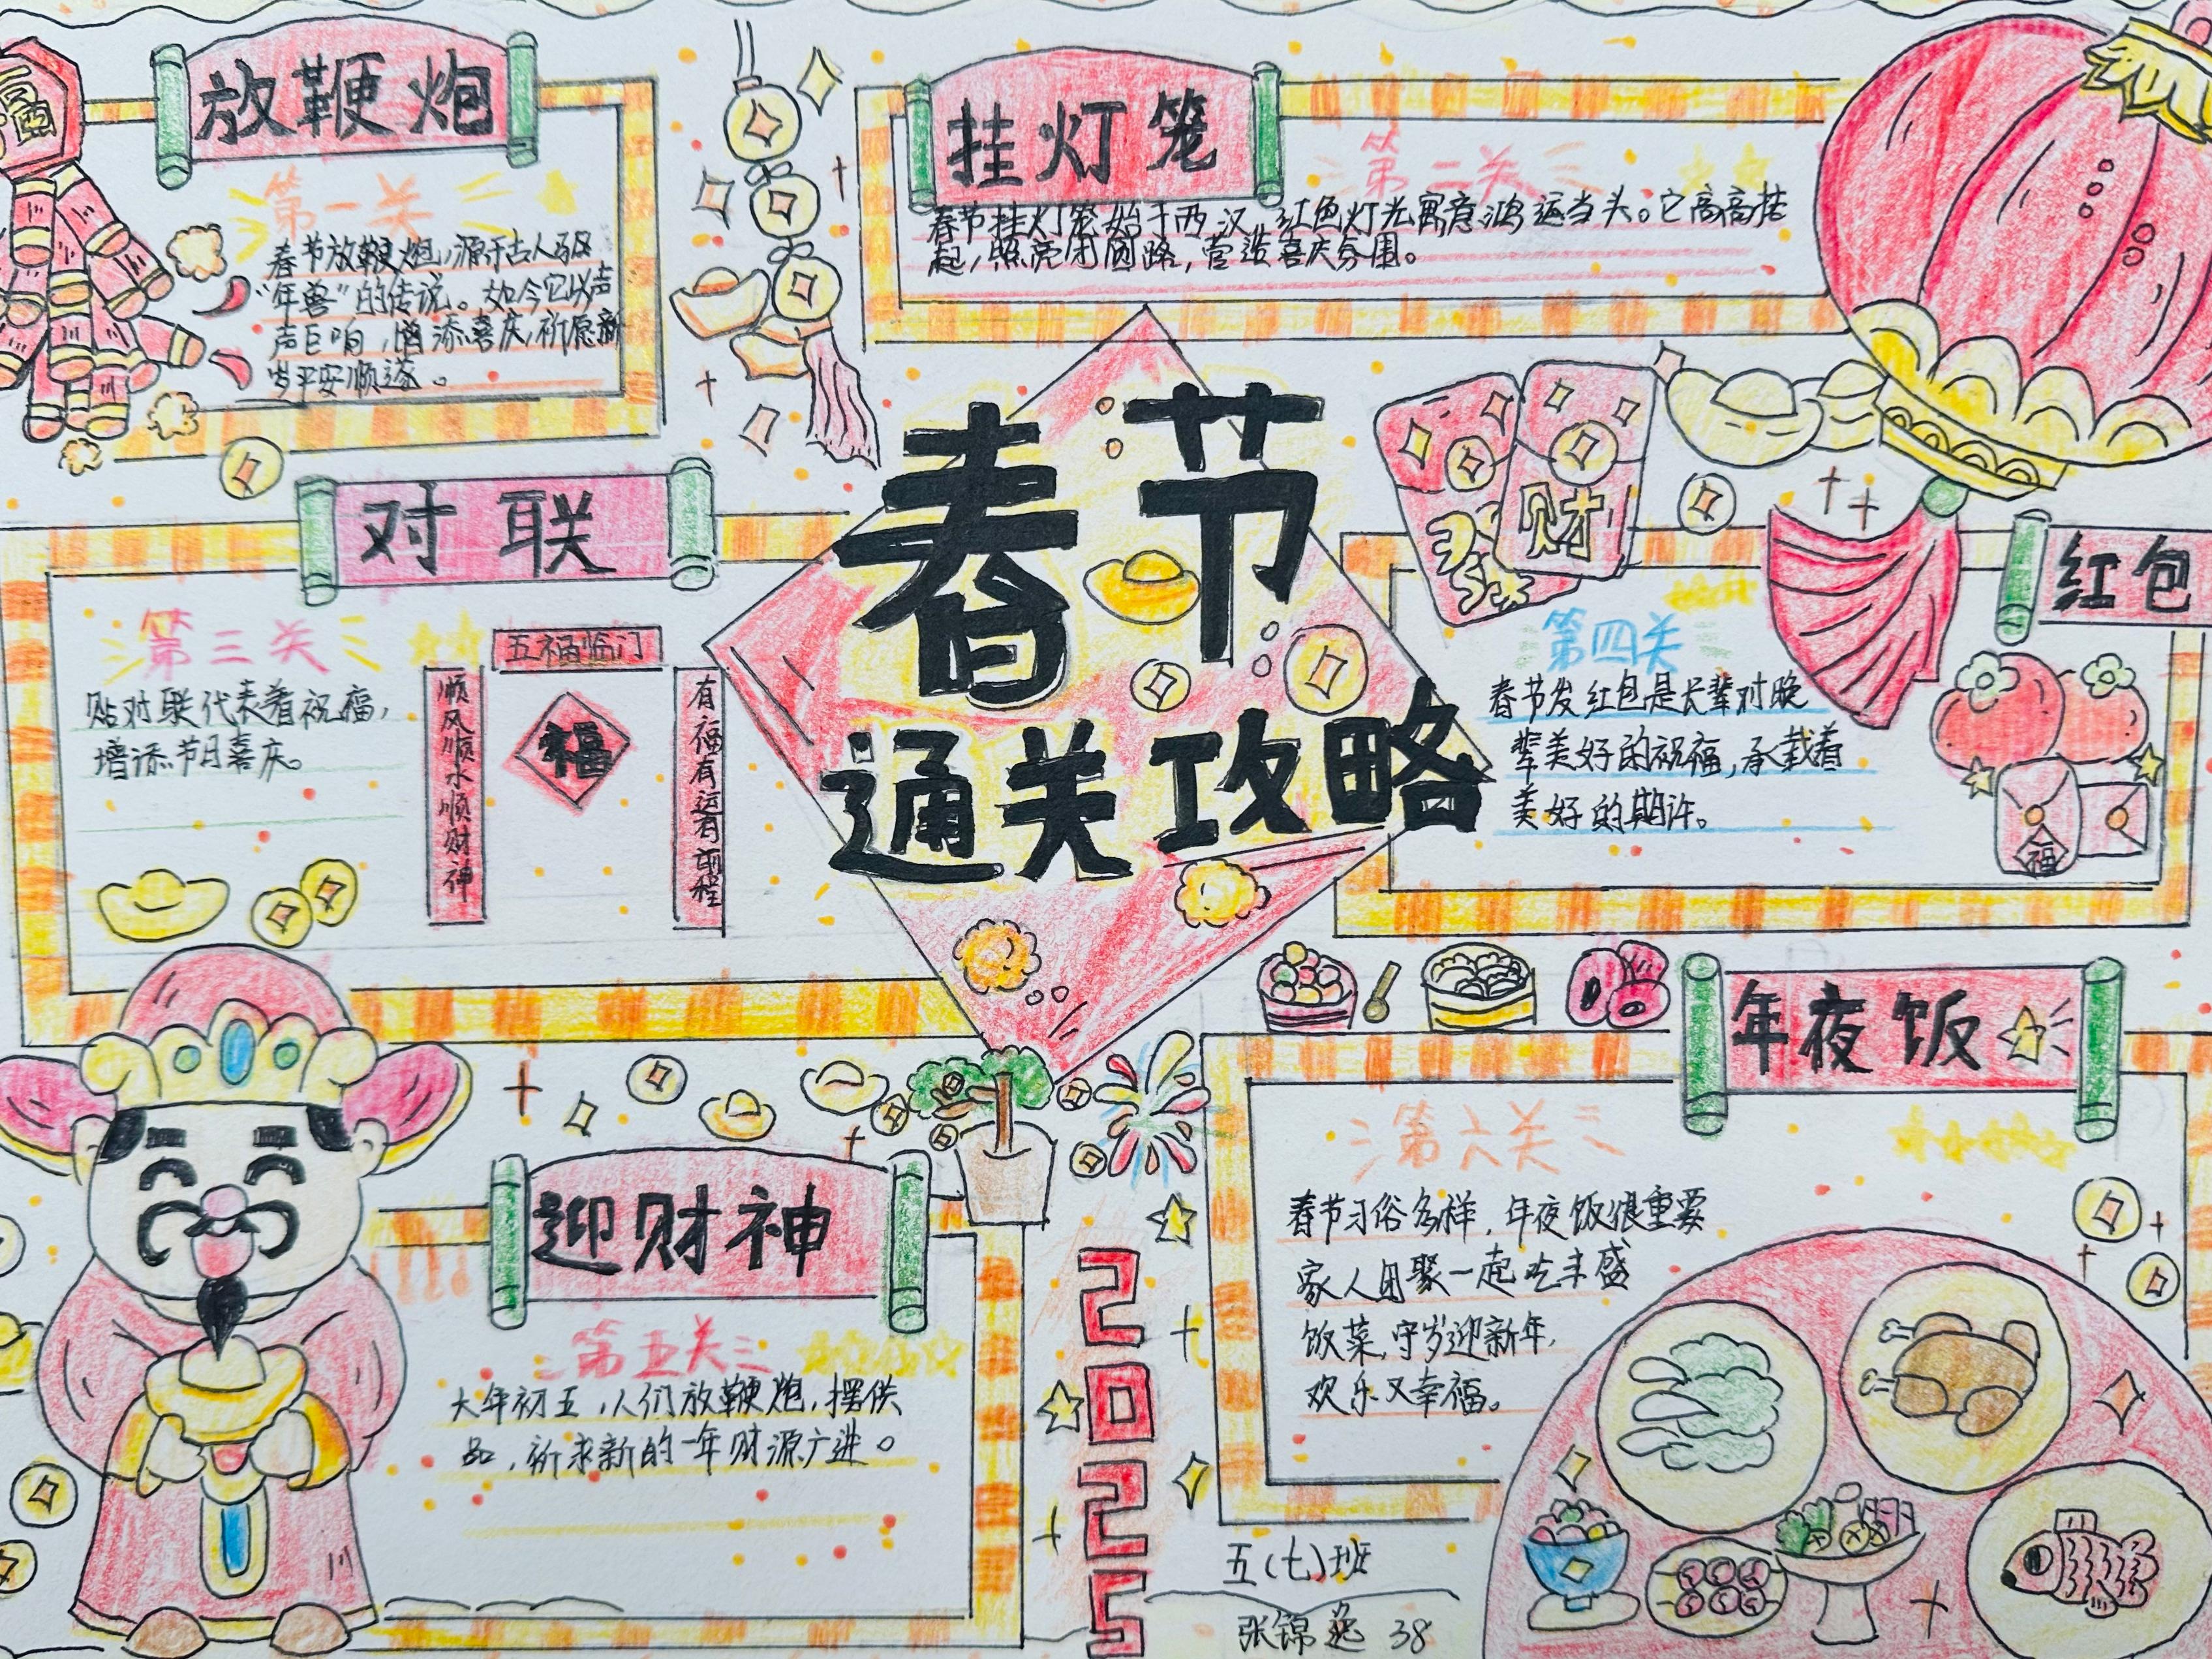 放鞭炮
第一关
春节放鞭炮,源于古人驱
“年兽”的传说。如今它以声
声巨响,增添喜庆,祈愿新
岁平安顺遂。
挂灯笼
第二关
春节挂灯笼始于西汉,红色灯光寓意鸿运当头。它高高挂
起,照亮团圆路,营造喜庆氛围。
春节
通关攻略
对联
第三关
贴对联代表着祝福,
增添节日喜庆。
五福临门
顺风顺水顺财神
福
有福有运有前程
财
红包
第四关
春节发红包是长辈对晚
辈美好的祝福,承载着
美好的期许。
福
迎财神
第五关
大年初五,人们放鞭炮,摆供
品,祈求新的一年财源广进。
年夜饭
第六关
春节习俗多样,年夜饭很重要
家人团聚一起吃丰盛
饭菜,守岁迎新年,
欢乐又幸福。
2025
五(七)班
张锦逸 38